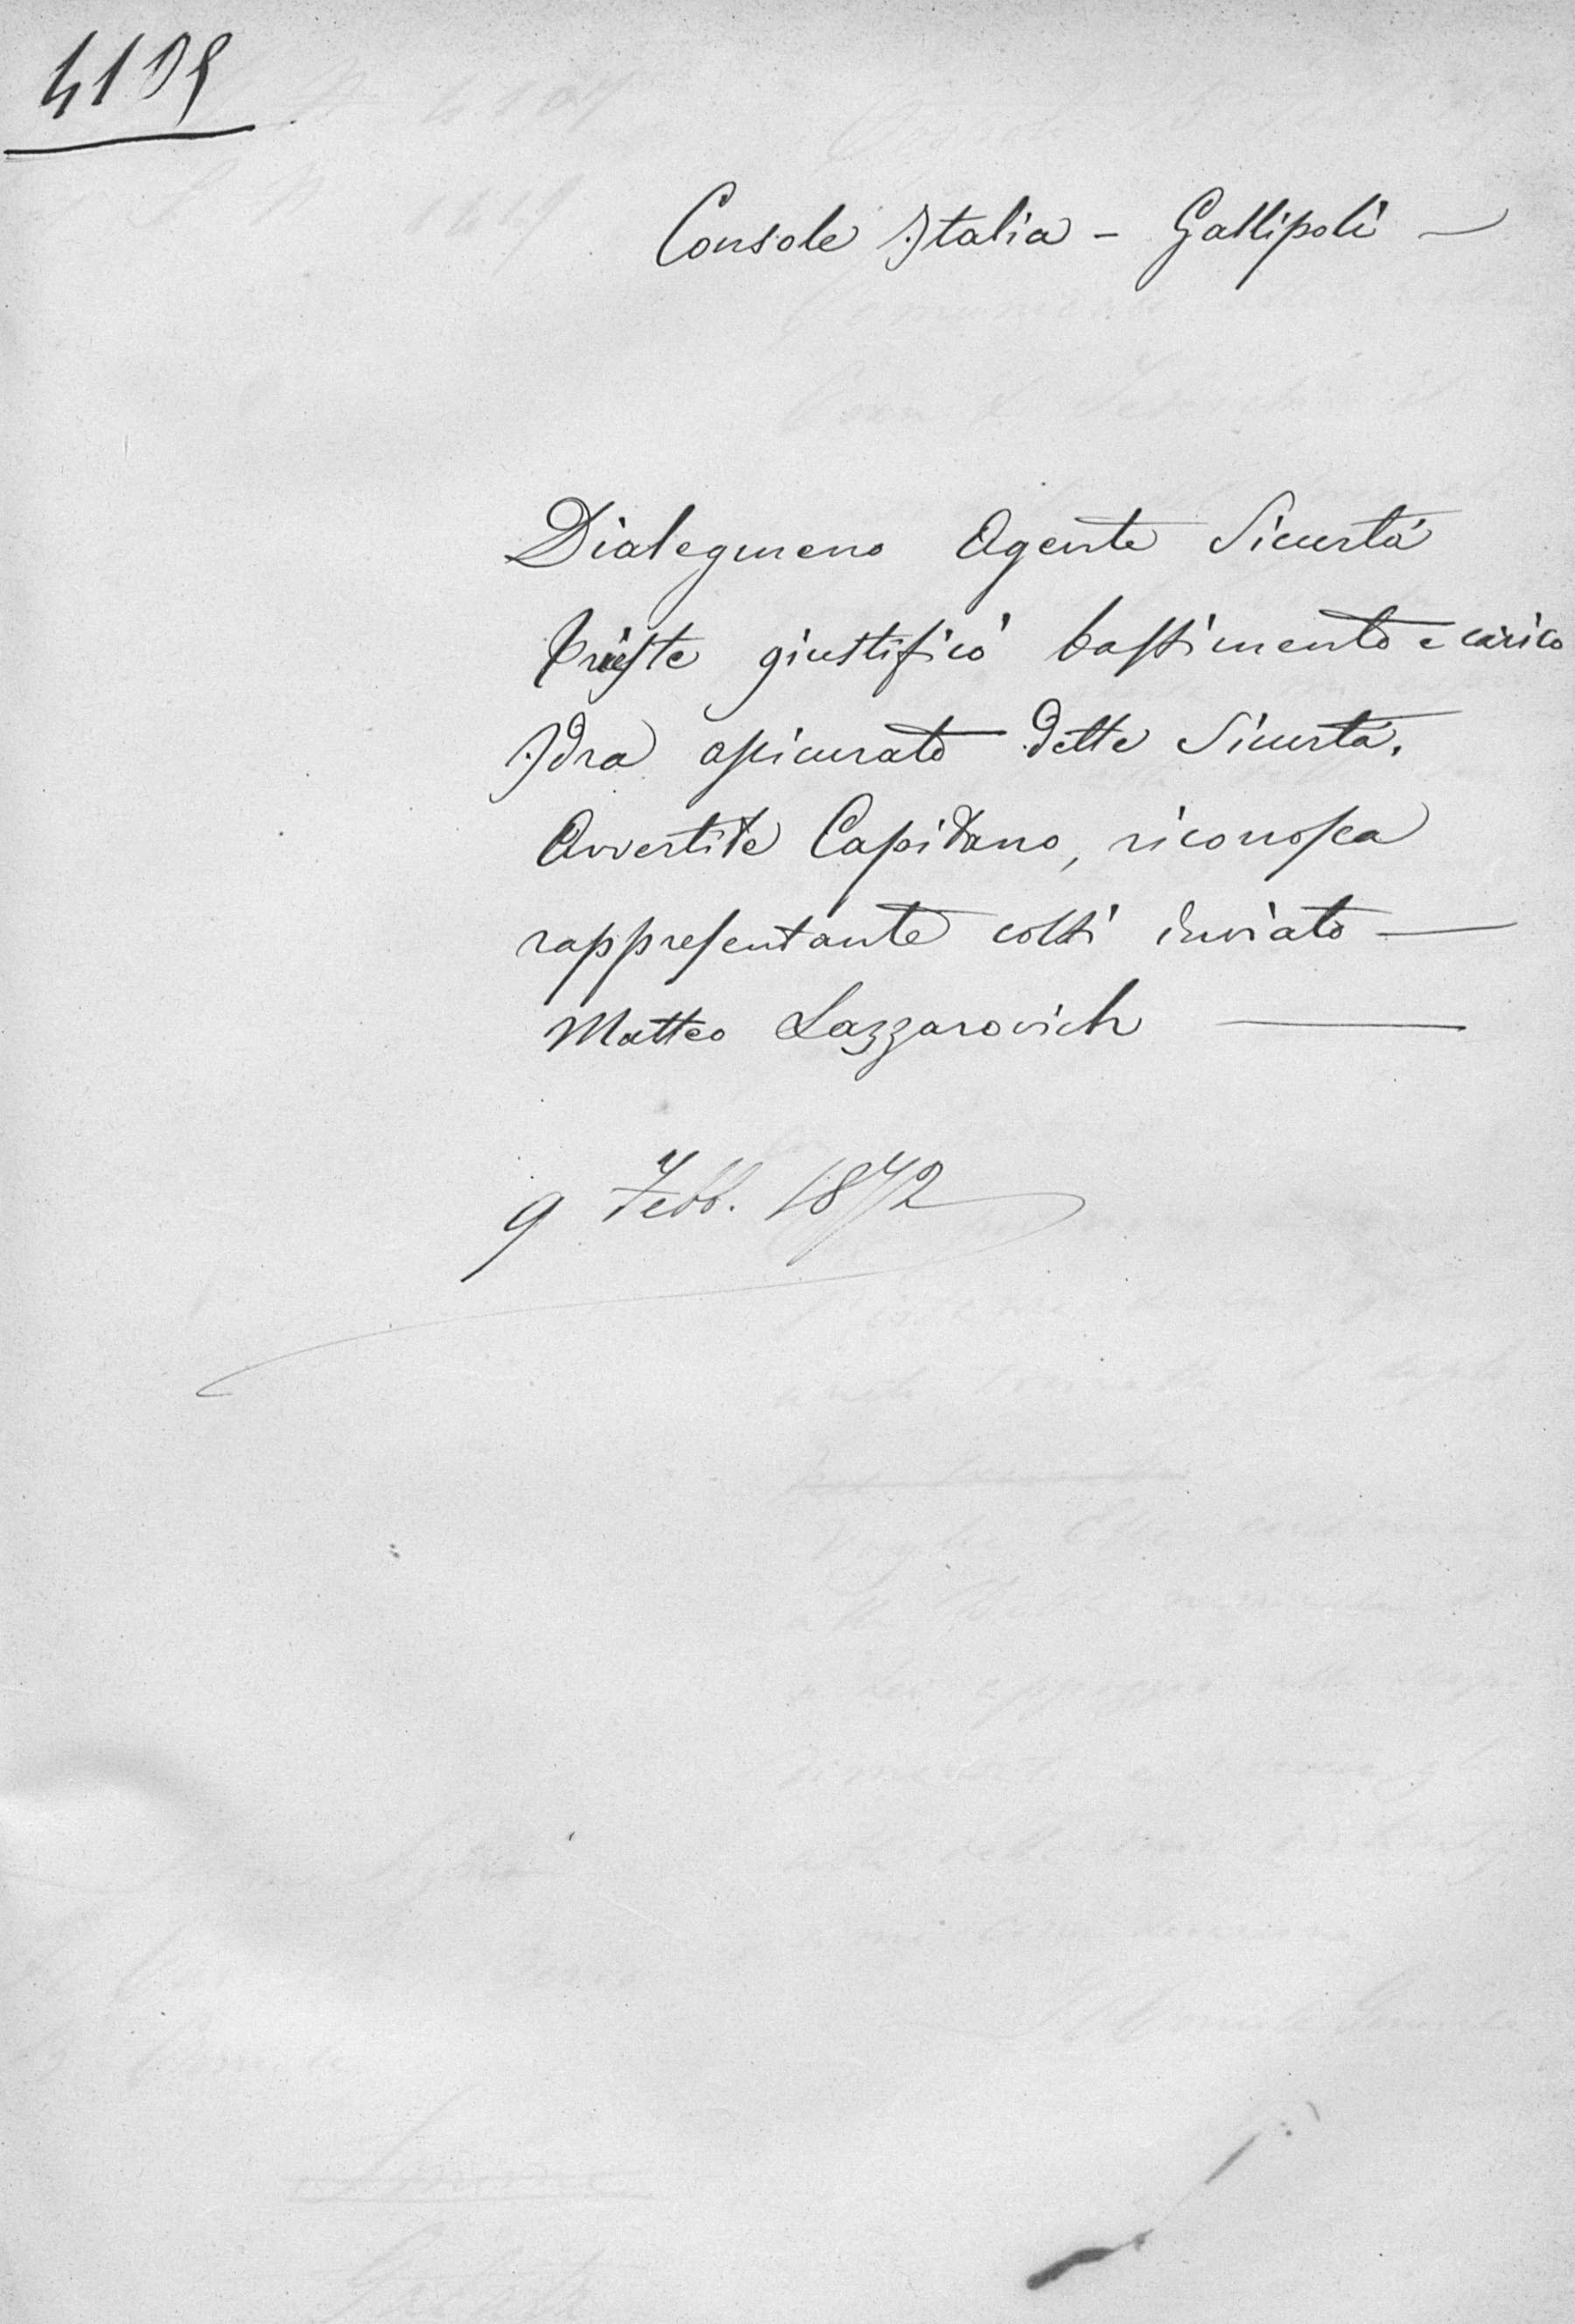 4195
Console Italia - Gallipoli -
Dialegmeno Agente Sicurtà
Trieste giustificò bastimento e carico
Idra assicurato dette Sicurtà.
Avvertite Capitano, riconosca
rappresentante costì inviato —
Matteo Lazzarovich —
9 Febb. 1872